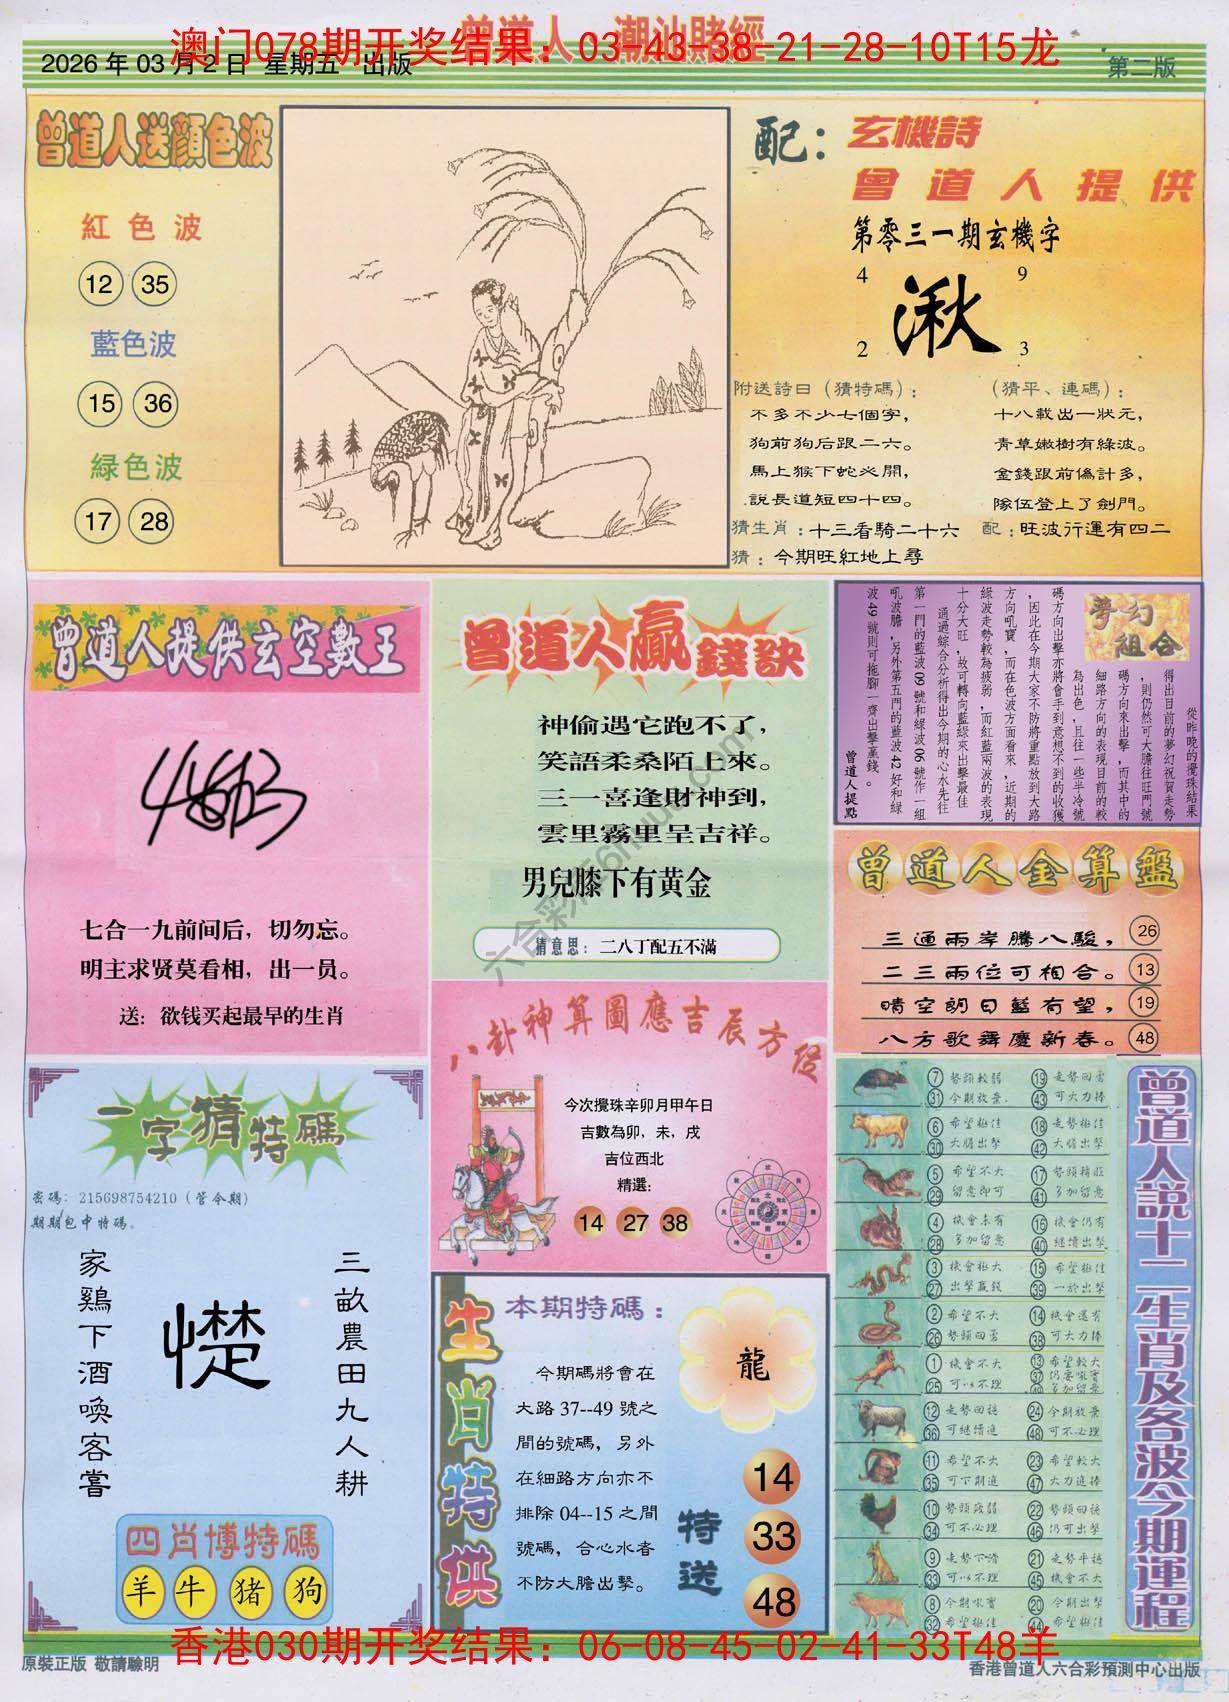 曾道人 潮汕賭經
澳门078期开奖结果：03-43-38-21-28-10T15龙
2026 年 03 月 2 日 星期五 出版
第二版
曾道人送顏色波
紅色波
12 35
藍色波
15 36
緑色波
17 28
配：
玄機詩
曾道人提供
第零三一期玄機字
4 9
湫
2 3
附送詩曰（猜特碼）：
不多不少七個字，
狗前狗后跟二六。
馬上猴下蛇必開，
說長道短四十四。
（猜平、連碼）：
十八載出一狀元，
青草嫩樹有綠波。
金錢跟前偽計多，
隊伍登上了劍門。
猜生肖：十三看騎二十六
配：旺波行運有四二
猜：今期旺紅地上尋
曾道人提供玄空數王
七合一九前间后，切勿忘。
明主求贤莫看相，出一员。
送：欲钱买起最早的生肖
曾道人贏錢訣
神偷遇它跑不了，
笑語柔桑陌上來。
三一喜逢財神到，
雲里霧里呈吉祥。
男兒膝下有黄金
猜意思：二八丁配五不滿
夢幻組合
從昨晚的攪珠結果
得出目前的夢幻祝賀走勢
，則仍然可大膽往旺門號
碼方向來出擊，而其中的
細路方向的表現目前的較
為出色，且往一些半冷號
碼方向出擊亦將會手到意想不到的收獲
，因此在今期大家不防將重點放到大路
方向吼寶，而在色波方面看來，近期的
綠波走勢較為疲弱，而紅藍兩波的表現
十分大旺，故可轉向藍綠來出擊最佳
通過綜合分析得出今期的心水先往
第一門的藍波09號和綠波06號作一組
吼波膽，另外第五門的藍波42好和綠
波49號則可拖腳一齊出擊贏錢。
曾道人提點
曾道人金算盤
三通兩岸騰八駿， 26
二三兩位可相合。 13
晴空朗日藍有望， 19
八方歌舞慶新春。 48
八卦神算圖應吉辰方位
今次攪珠辛卯月甲午日
吉數為卯，未，戌
吉位西北
精選：
14 27 38
一字猜特碼
密碼：215698754210（管今期）
期期包中特碼。
三畝農田九人耕
憷
家鷄下酒喚客嘗
四肖博特碼
羊 牛 猪 狗
生肖特供
本期特碼：
龍
今期碼將會在
大路37--49號之
間的號碼，另外
在細路方向亦不
排除04--15之間
號碼，合心水者
不防大膽出擊。
特送
14
33
48
曾道人説十二生肖及各波今期運程
7 31 勢頭較弱 今期放棄 19 43 走勢回勇 可大力捧
6 30 希望極佳 大膽出擊 18 42 走勢極佳 大膽出擊
5 29 希望不大 留意即可 17 41 勢頭精旺 多加留意
4 28 機會未有 多加留意 16 40 機會仍有 繼續出擊
3 27 機會極大 出擊贏錢 15 39 希望極佳 一於出擊
2 26 希望不大 勢頭回勇 14 38 機會還有 可大力捧
1 25 機會不大 可以不理 13 37 49 希望較大 仍要吼實 多加留意
12 36 走勢回穩 可繼續追 24 48 今期放棄 可不必理
11 35 希望不大 可下期追 23 47 希望較大 大力追捧
10 34 勢頭疲弱 可不必理 22 46 勢頭回穩 仍可出擊
9 33 走勢下滑 可以不理 21 45 走勢平穩 機會不大
8 32 今期吼實 希望極佳 20 44 今期出擊 希望極佳
香港030期开奖结果：06-08-45-02-41-33T48羊
原裝正版 敬請驗明
香港曾道人六合彩預測中心出版